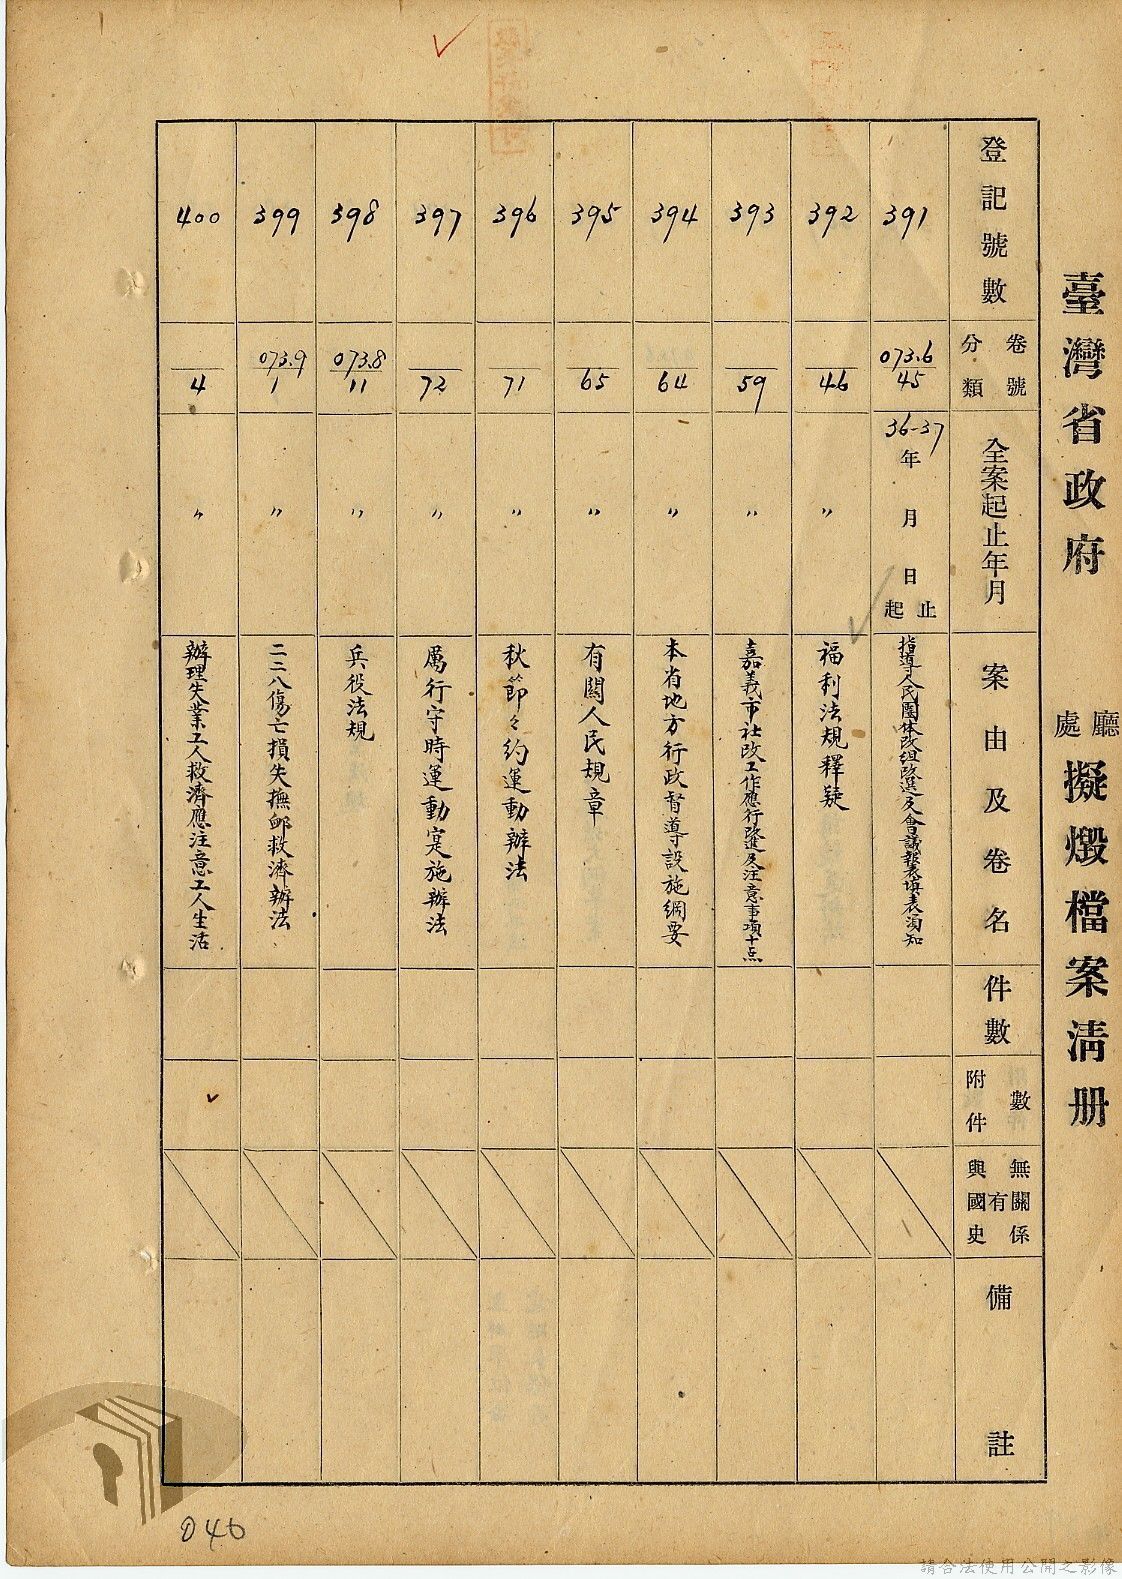 臺灣省政府 廳處擬燬檔案清册
登記號數
卷號分類
全案起止年月
案由及卷名
件數
附件數
與國史有無關係
備註
391
073.6
45
36-37
年 月 日
起止
指導人民團体改組改選及會議報表填表須知
392
46
〃
福利法規釋疑
393
59
〃
嘉義市社政工作應行改進及注意事項十点
394
64
〃
本省地方行政督導設施綱要
395
65
〃
有關人民規章
396
71
〃
秋節々約運動辦法
397
72
〃
厲行守時運動寔施辦法
398
073.8
11
〃
兵役法規
399
073.9
1
〃
二二八傷亡損失撫卹救濟辦法
400
4
〃
辦理失業工人救濟應注意工人生活
040
請合法使用公開之影像